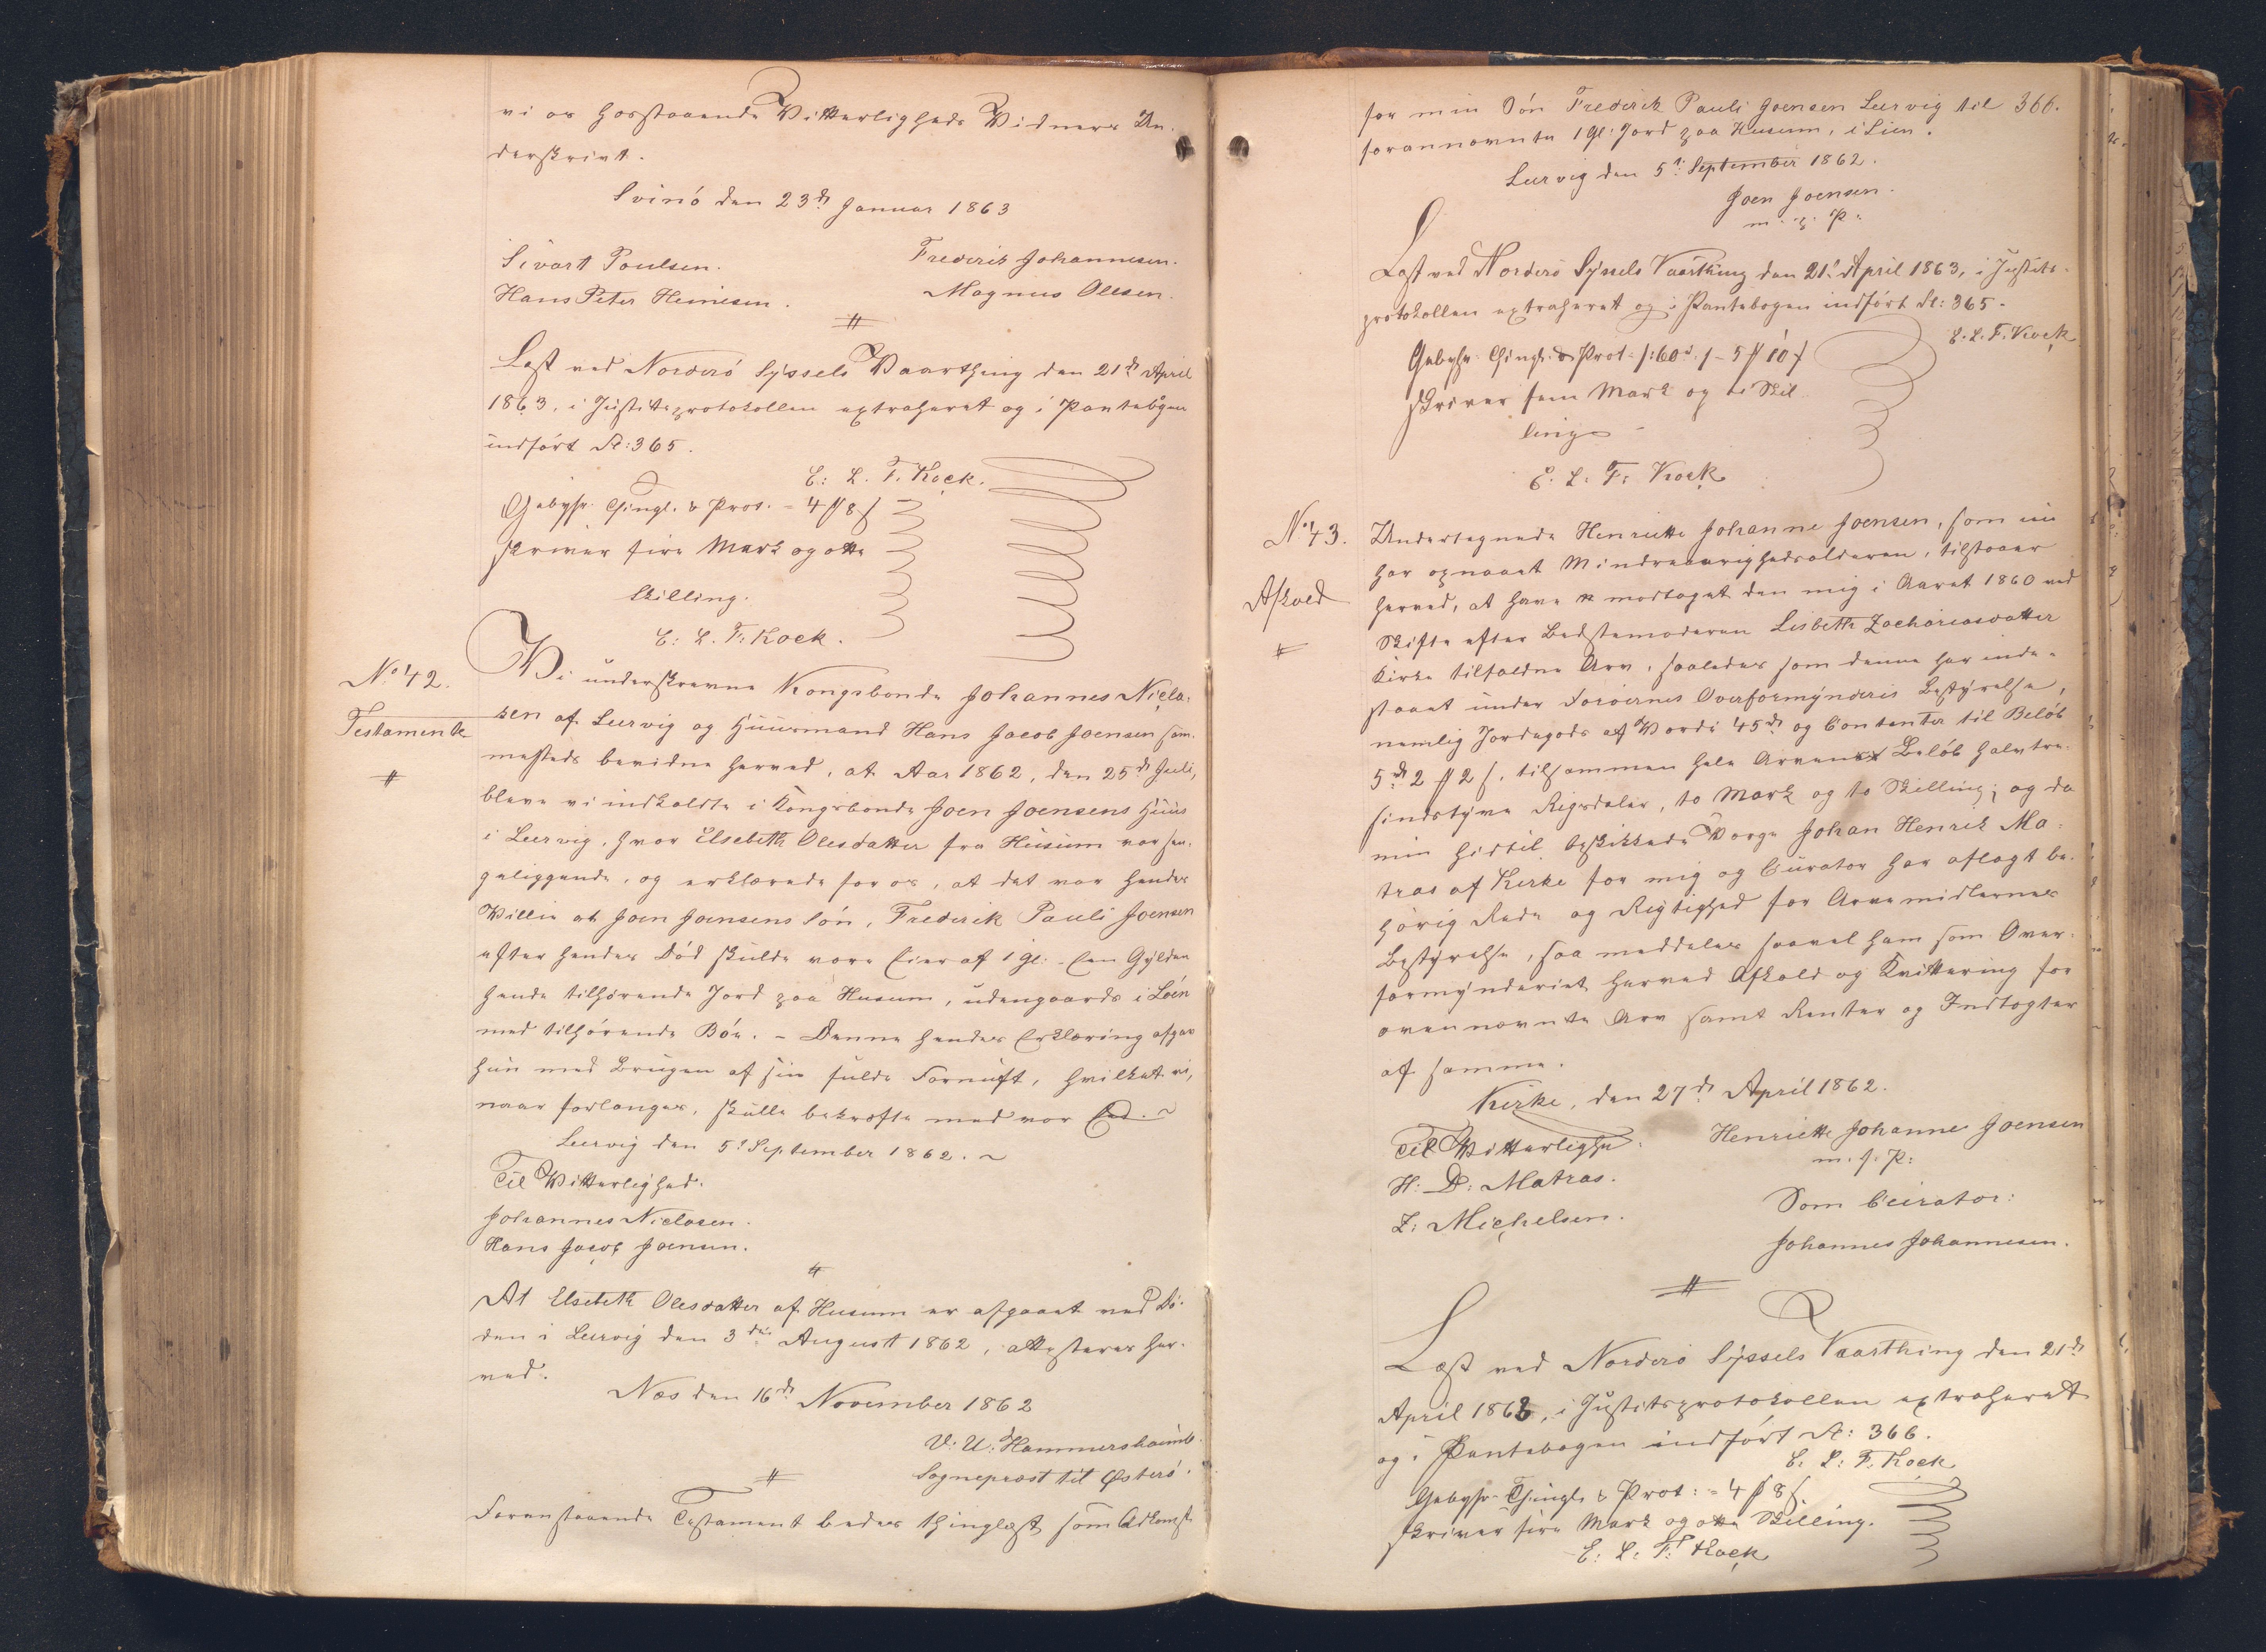 vi os hosstaaende Vitterligheds Vidners Un-
derskrivt.
Svinó den 23de Januar 1863
Sivart Poulsen.
Frederik Johannesen.
Hans Peter Heinesen.
Magnus Olesen.
Læst ved Norderó Syssels Vaarthing den 21de April
1863, i Justitsprotokollen extraheret og i Pantebogen
indført Fol: 365.
E: L. F. Kock.
Gebyhr Thingl. & Prot. = 4 ℔ 8 ſ
skriver fire Mark og otte
Skilling.
E: L. F: Kock.
No 42.
Testamente
Vi underskrevne Kongsbonde Johannes Nicla-
sen af Leervig og Huusmand Hans Jacob Joensen sam-
mesteds bevidne herved, at Aar 1862, den 25de Juli,
bleve vi indkaldte i Kongsbonde Joen Joensens Huus
i Leervig, hvor Elsebeth Olesdatter fra Húsum var sen-
geliggende, og erklærede for os, at det var hendes
Villie at Joen Joensens Són, Frederik Pauli Joensen
efter hendes Død skulde være Eier af 1 Gl: - Een Gylden
hende tilhørende Jord paa Husum, udengaards i Lóen
med tilhórende Bóe. - Denne hendes Erklæring afgav
hun med Brugen af sin fulde Fornuft, hvilket vi,
naar forlanges, skulle bekræfte med vor Eed.
Leervig den 5t September 1862.
Til Vitterlighed.
Johannes Niclasen.
Hans Jacob Joensen.
At Elsebeth Olesdatter af Husum er afgaaet ved Dó-
den i Leervig den 3die August 1862, attesteres her-
ved.
Næs den 16de November 1862
V: U: Hammershaimb.
Sognepræst til Østeró.
Foranstaaende Testament bedes thinglæst som Adkomst
for min Són Frederik Pauli Joensen Leervig til 366.
forannævnte 1 Gl. Jord paa Husum, i Lien.
Leervig den 5t September 1862.
Joen Joensen.
m. p. P.
Læst ved Norderó Syssels Vaarthing den 21de April 1863, i Justits-
protokollen extraheret og i Pantebogen indfórt Fol: 365.
E. L. F. Kock
Gebyhr Thingl. & Prot. 5 ℔ 10 ſ
skriver fem Mark og ti Skil
ling
E. L. F. Kock
No 43.
Afkald
Undertegnede Henriette Johanne Joensen, som nu
har opnaaet Mindreaarighedsalderen, tilstaaer
herved, at have modtaget den mig i Aaret 1860 ved
Skifte efter Bedstemoderen Lisbeth Zachariasdatter
Kirke tilfaldne Arv, saaledes som denne har inde-
staaet under Færóernes Overformynderis Bestyrelse,
nemlig Jordegods af Værdi 45rd og Contanter til Belób
5rd 2 ℔ 2 ſ. tilsammen hele Arvens Belób halvtre-
sindstyve Rigsdaler, to Mark og to Skilling; og da
min hidtil beskikkede Værge Johan Henrik Ma-
tras af Kirke for mig og Curator har aflagt be-
hórig Rede og Rigtighed for Arvemidlernes
Bestyrelse, saa meddeles saavel ham som Over-
formynderiet herved Afkald og Kvittering for
ovennævnte Arv samt Renter og Indtægter
af samme.
Kirke, den 27de April 1862.
Til Vitterlighed.
Henriette Johanne Joensen
m. f. P:
H: D: Matras.
Som Curator:
Z: Michelsen.
Johannes Johannesen.
Læst ved Norderó Syssels Vaarthing den 21de
April 1863, i Justitsprotokollen extraheret
og i Pantebogen indfórt Fol: 366.
E. L. F. Kock
Gebyhr Thingl. & Prot: = 4 ℔ 8 ſ
skriver fire Mark og otte Skilling.
E: L: F: Kock